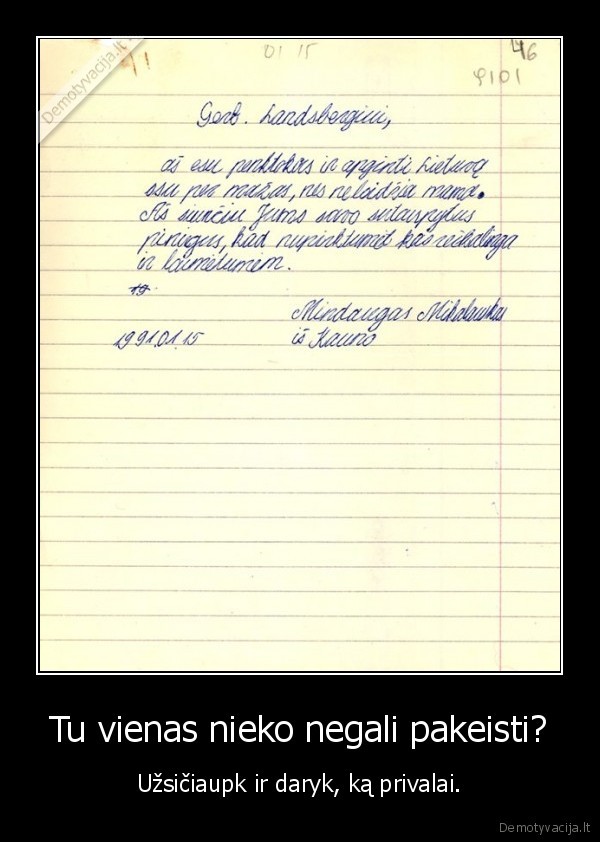 Demotyvacija.lt
01 15
46
9101
Gerb. Landsbergiui,
aš esu penktokas ir apginti Lietuvą
esu per mažas, nes neleidžia mama.
Aš siunčiu Jums savo sutaupytus
pinigus, kad nupirktumėt kas reikalinga
ir laimėtumėm.
19
Mindaugas Mikalauskas
1991.01.15 iš Kauno
Tu vienas nieko negali pakeisti?
Užsičiaupk ir daryk, ką privalai.
Demotyvacija.lt